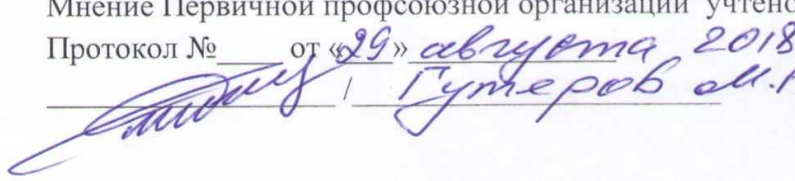 Мнение Первичной профсоюзной организации учтено
Протокол №____ от «29» августа 2018
/ Гутеров М.